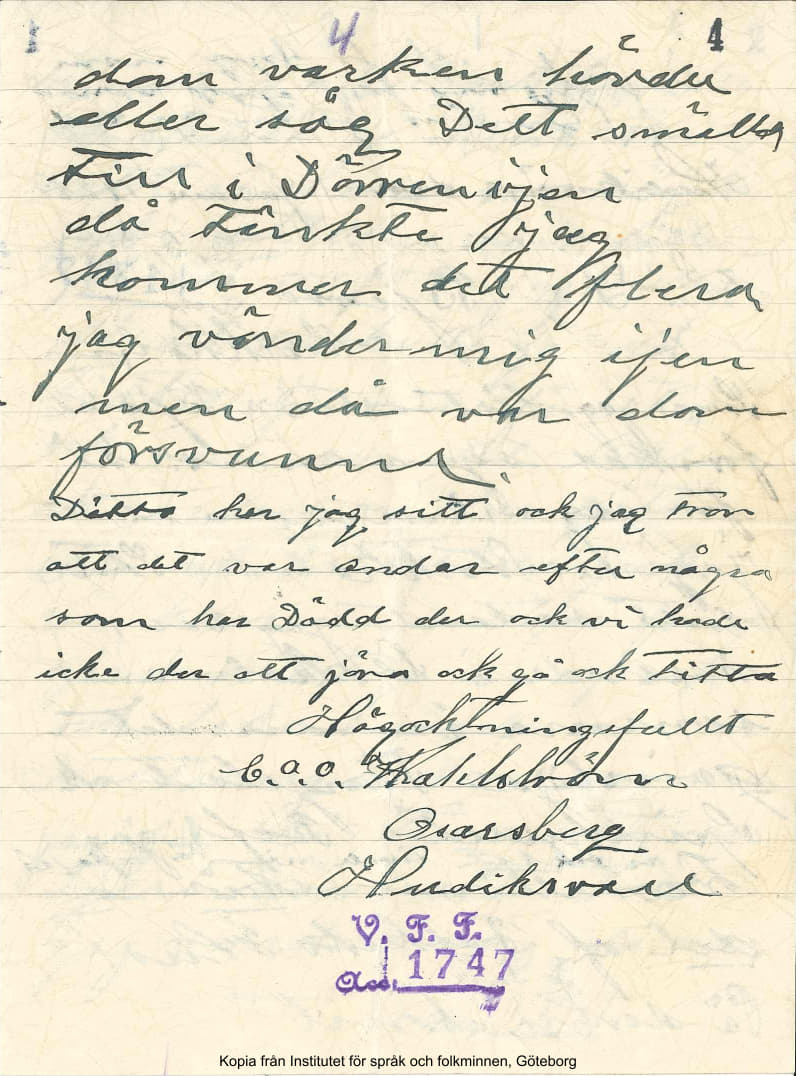 4 4
dom varken hörde
eller såg Dett smälld
Till i Dörren ijen
då Tänkte jag
kommer det flera
jag vänder mig ijen
men då var dom
försvunna.
Detta har jag sitt ock jag tror
att det var andar efter några
som har Dödd der ock vi hade
icke der att jöra ock gå ock titta
Högachtningsfullt
C.a.o. Wahlström
Osarsberg
Hudiksvall
V. F. F.
Acc. 1747
Kopia från Institutet för språk och folkminnen, Göteborg